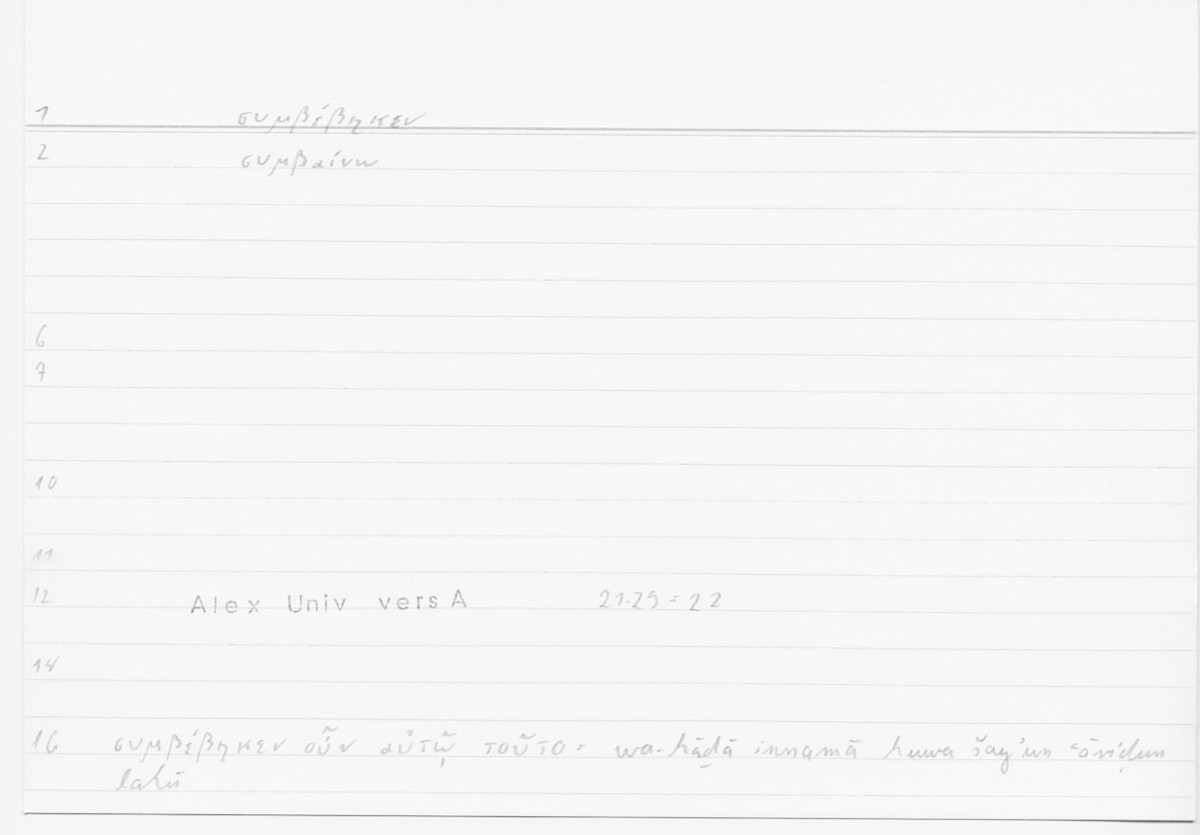 1 συμβέβηκεν
2 συμβαίνω
6
7
10
11
12 Alex Univ vers A 21.25 = 22
14
16 συμβέβηκεν οὖν αὐτῷ τοῦτο = wa-hāḏā innamā huwa šay’un ʿāriḍun
lahū